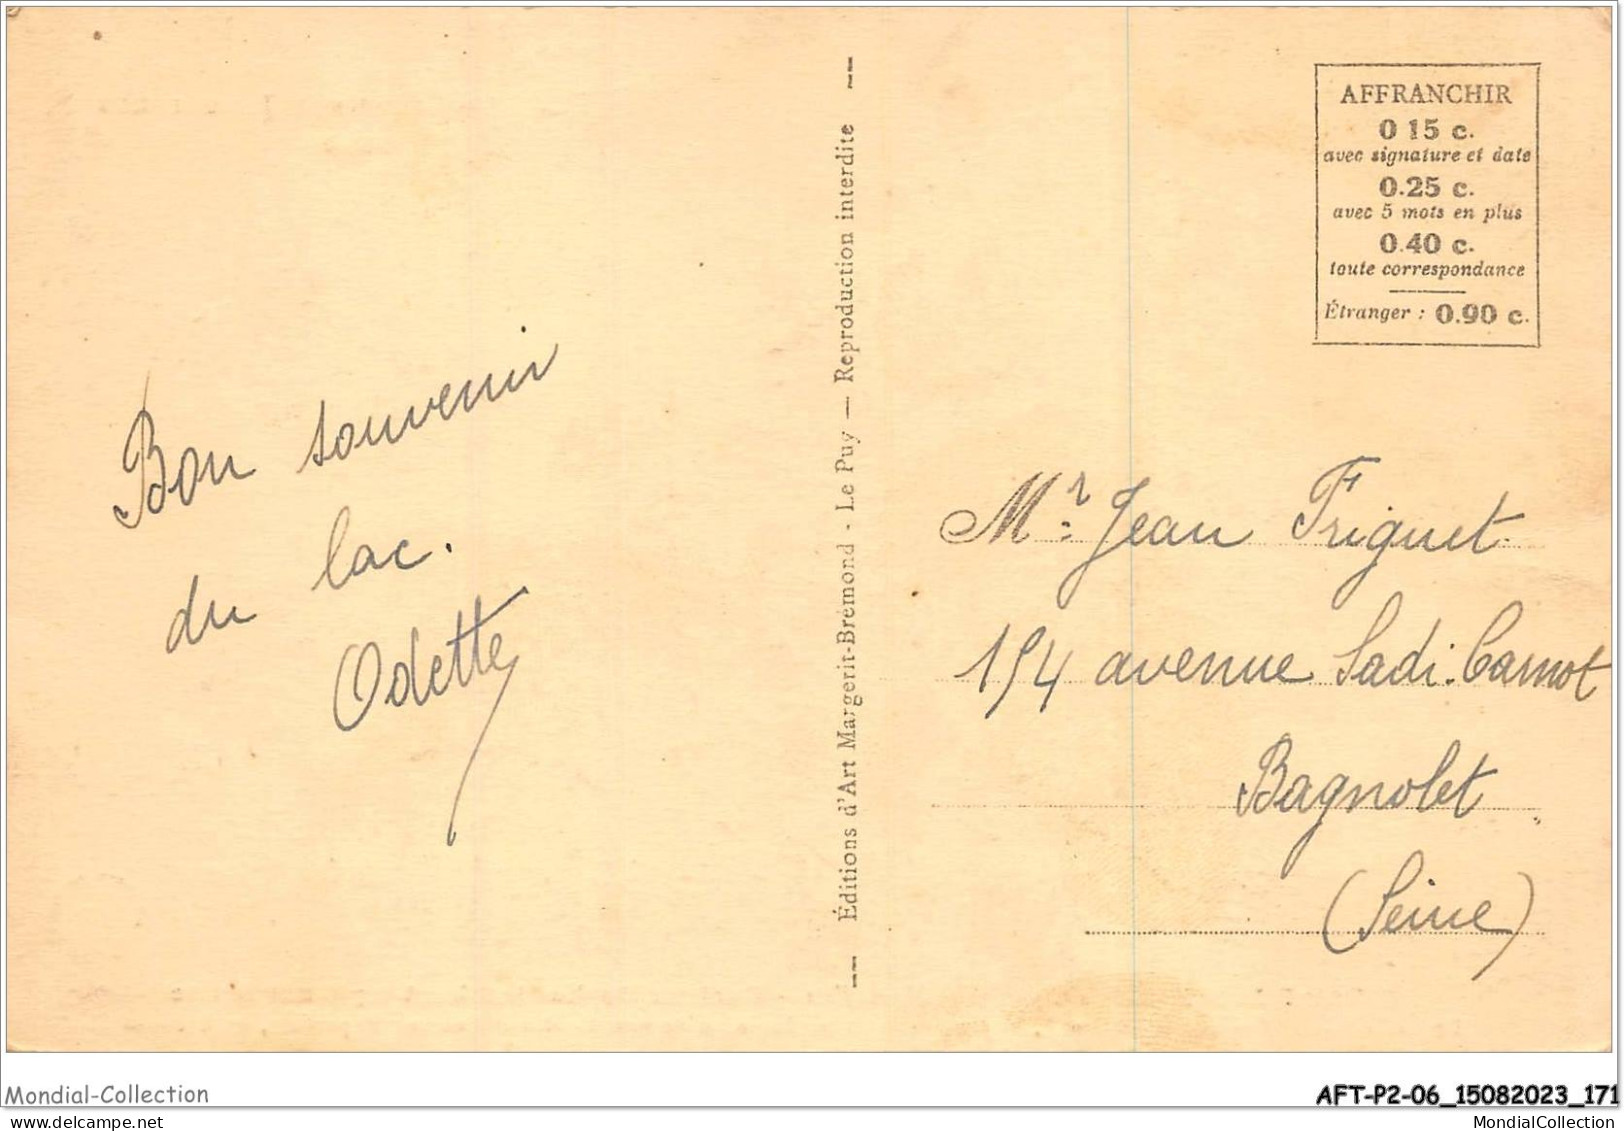 Bon souvenir
du lac.
Odette
Éditions d'Art Margerit-Brémond - Le Puy — Reproduction interdite
AFFRANCHIR
0 15 c.
avec signature et date
0.25 c.
avec 5 mots en plus
0.40 c.
toute correspondance
Étranger : 0.90 c.
Mr. Jean Friguet
154 avenue Sadi-Carnot
Bagnolet
(Seine)
Mondial-Collection
AFT-P2-06_15082023_171
mondial-collection.com
MondialCollection